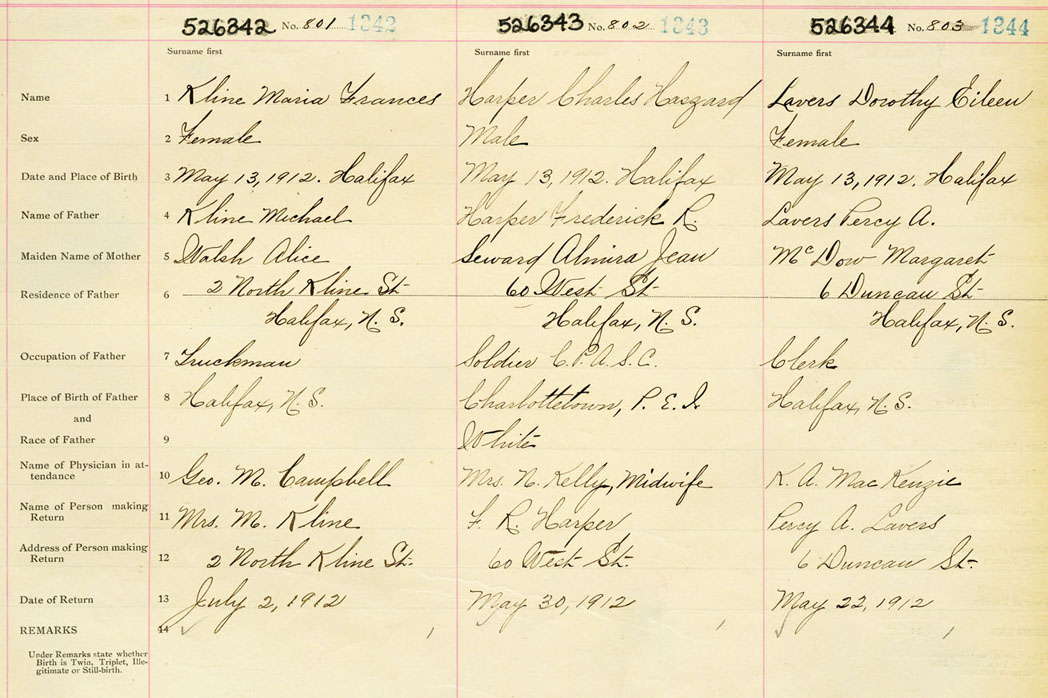 526342 No. 801 1342 526343 No. 802 1343 526344 No. 803 1344
Surname first Surname first Surname first
Name 1 Kline Maria Frances Harper Charles Haszard Lavers Dorothy Eileen
Sex 2 Female Male Female
Date and Place of Birth 3 May 13, 1912. Halifax May 13, 1912. Halifax May 13, 1912. Halifax
Name of Father 4 Kline Michael Harper Frederick R. Lavers Percy A.
Maiden Name of Mother 5 Walsh Alice Seward Almira Jean McDow Margaret
Residence of Father 6 2 North Kline St. 60 West St. 6 Duncan St.
Halifax, N. S. Halifax, N. S. Halifax, N. S.
Occupation of Father 7 Truckman Soldier C.P.A.S.C. Clerk
Place of Birth of Father 8 Halifax, N. S. Charlottetown, P. E. I. Halifax, N. S.
and
Race of Father 9 White
Name of Physician in at-
tendance 10 Geo. M. Campbell Mrs. N. Kelly, Midwife K. A. MacKenzie
Name of Person making
Return 11 Mrs. M. Kline F. R. Harper Percy A. Lavers
Address of Person making
Return 12 2 North Kline St. 60 West St. 6 Duncan St.
Date of Return 13 July 2, 1912 May 30, 1912 May 22, 1912
REMARKS 14
Under Remarks state whether
Birth is Twin, Triplet, Ille-
gitimate or Still-birth.